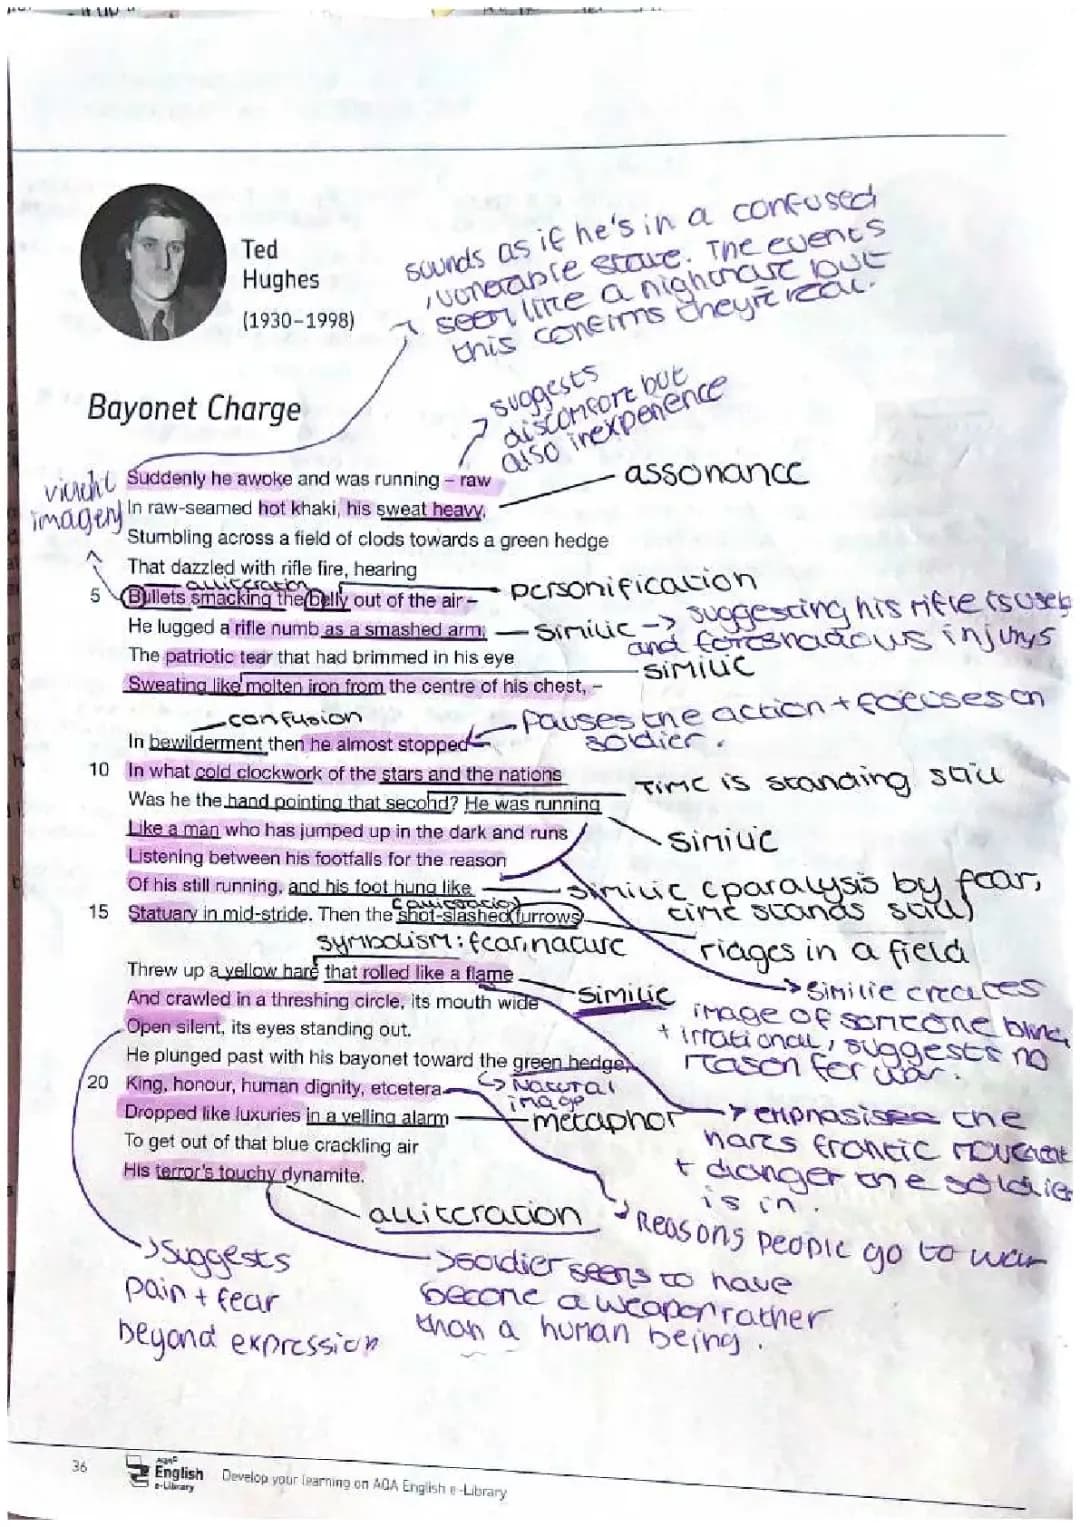 Ted
Hughes
(1930-1998)
sounds as if he's in a confused
, vunerable state. The events
seem like a nightmare but
this confirms they're real.
Bayonet Charge
suggests
discomfort but
also inexperience
assonance
violent
imagery
1 Suddenly he awoke and was running – raw
In raw-seamed hot khaki, his sweat heavy,
Stumbling across a field of clods towards a green hedge
That dazzled with rifle fire, hearing
alliteration
personification
5 Bullets smacking the belly out of the air –
He lugged a rifle numb as a smashed arm;
similie -> suggesting his rifle is useless
and foreshadows injurys
The patriotic tear that had brimmed in his eye
similie
Sweating like molten iron from the centre of his chest, –
confusion
pauses the action + focuses on
soldier.
In bewilderment then he almost stopped –
10 In what cold clockwork of the stars and the nations
Time is standing still
Was he the hand pointing that second? He was running
Like a man who has jumped up in the dark and runs
similie
Listening between his footfalls for the reason
Of his still running, and his foot hung like
similie (paralysis by fear,
time stands still)
15 Statuary in mid-stride. Then the shot-slashed furrows
symbolism: fear, nature
ridges in a field
Threw up a yellow hare that rolled like a flame
similie
-> similie creates
image of someone blind
+ irrational, suggests no
reason for war.
And crawled in a threshing circle, its mouth wide
Open silent, its eyes standing out.
He plunged past with his bayonet toward the green hedge,
Natural
image
20 King, honour, human dignity, etcetera
Dropped like luxuries in a yelling alarm
metaphor
-> emphasises the
hares frantic movement
+ danger the soldier
is in.
To get out of that blue crackling air
His terror's touchy dynamite.
alliteration
Reasons people go to war
-> suggests
pain + fear
beyond expression
-> soldier seems to have
become a weapon rather
than a human being.
36
AQA
English
e-Library
Develop your learning on AQA English e-Library